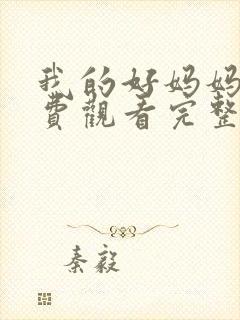 我的好妈妈
费觀看完整
秦毅